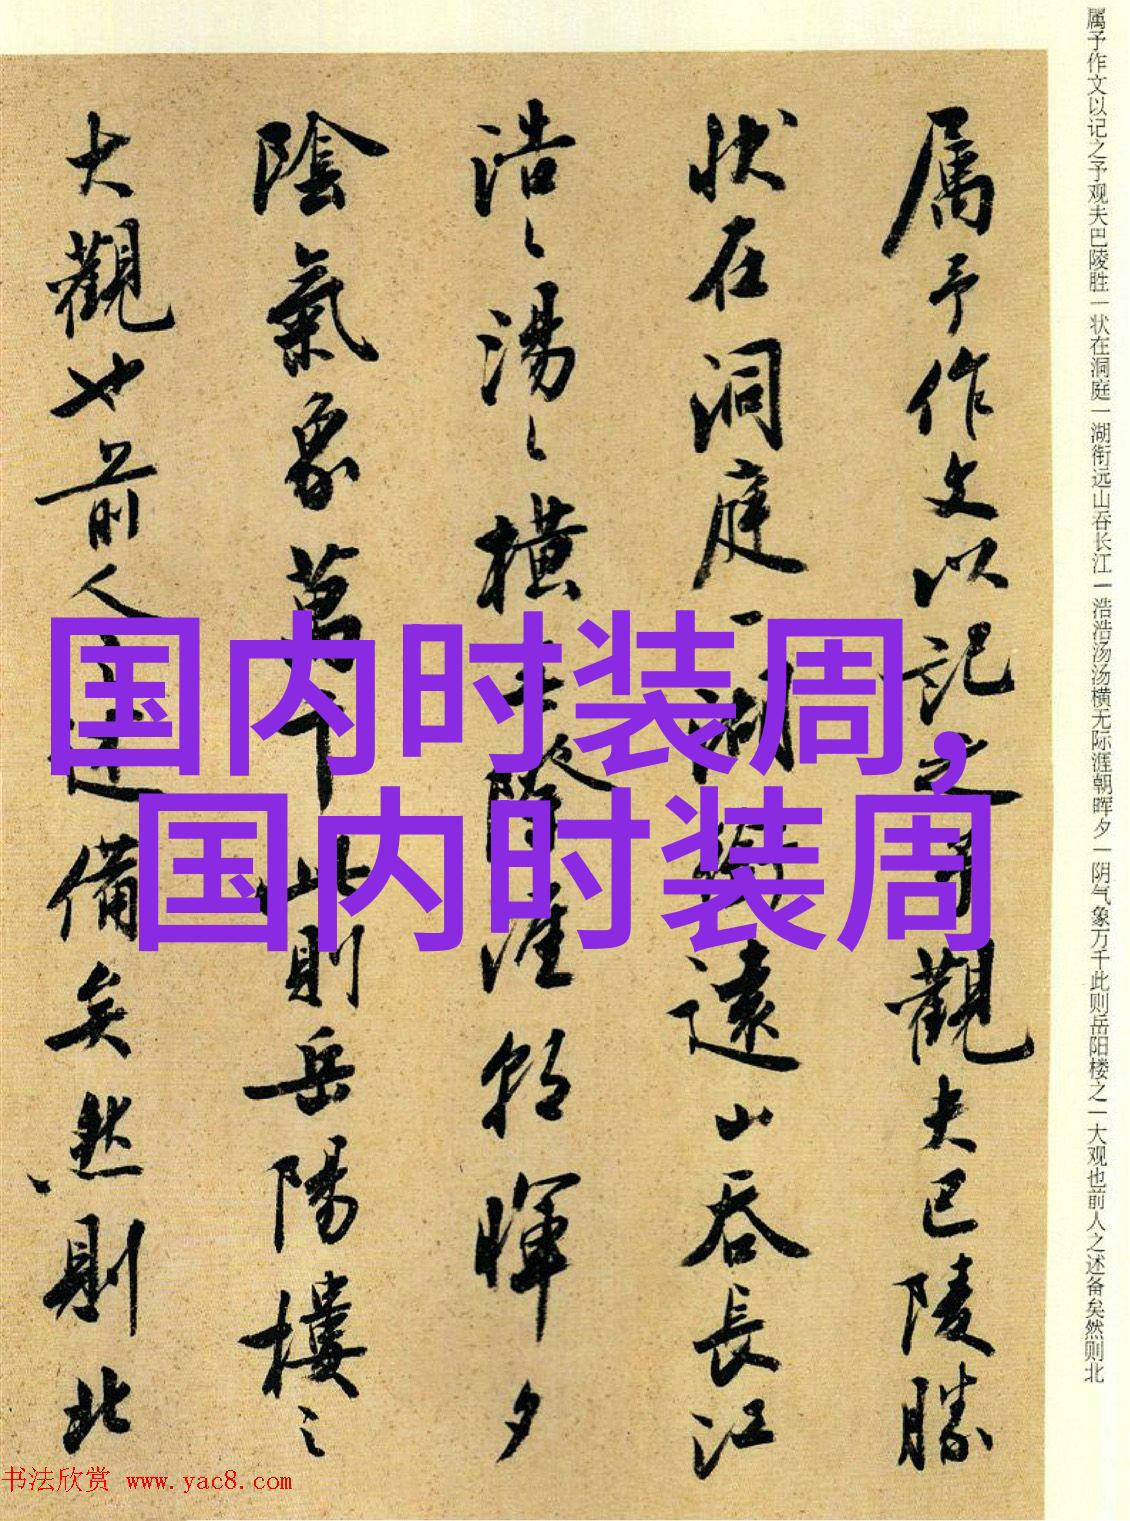 属予作文以记之予观夫巴陵胜一状在洞庭一湖衔远山吞长江一浩浩汤汤横无际涯朝晖夕一阴气象万千此则岳阳楼之一大观也前人之述备矣然则北
属予作文以記之予觀夫巴陵勝
状在洞庭一湖銜遠山吞長江
浩〻湯〻橫无際涯朝暉夕
陰氣象萬千此則岳陽樓之
大觀也前人之述備矣然則北
国内时装周,
国内时装周
书法欣赏 www.yac8.com